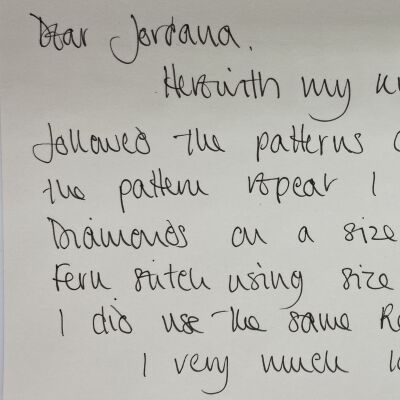 Dear Jordana,
Herewith my
followed the patterns
the pattern repeat I
Diamonds on a size
Fern stitch using size
I did use the same
I very much